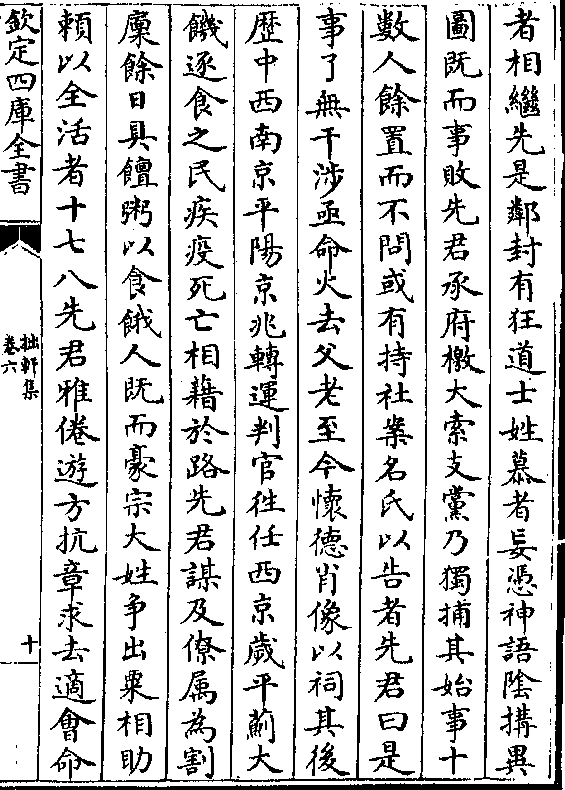 者相繼先是鄰封有狂道士姓慕者妄憑神語陰搆異
圖既而事敗先君承府檄大索支黨乃獨捕其始事十
數人餘置而不問或有持社案名氏以告者先君曰是
事了無干涉亟命火去父老至今懷德肖像以祠其後
歴中西南京平陽京兆轉運判官徃任西京歲平薊大
饑逐食之民疾疫死亡相藉於路先君謀及僚属為割
廩餘日具饘粥以食餓人既而豪宗大姓争出粟相助
頼以全活者十七八先君雅倦遊方抗章求去適會命
欽定四庫全書
拙軒集
卷六
十